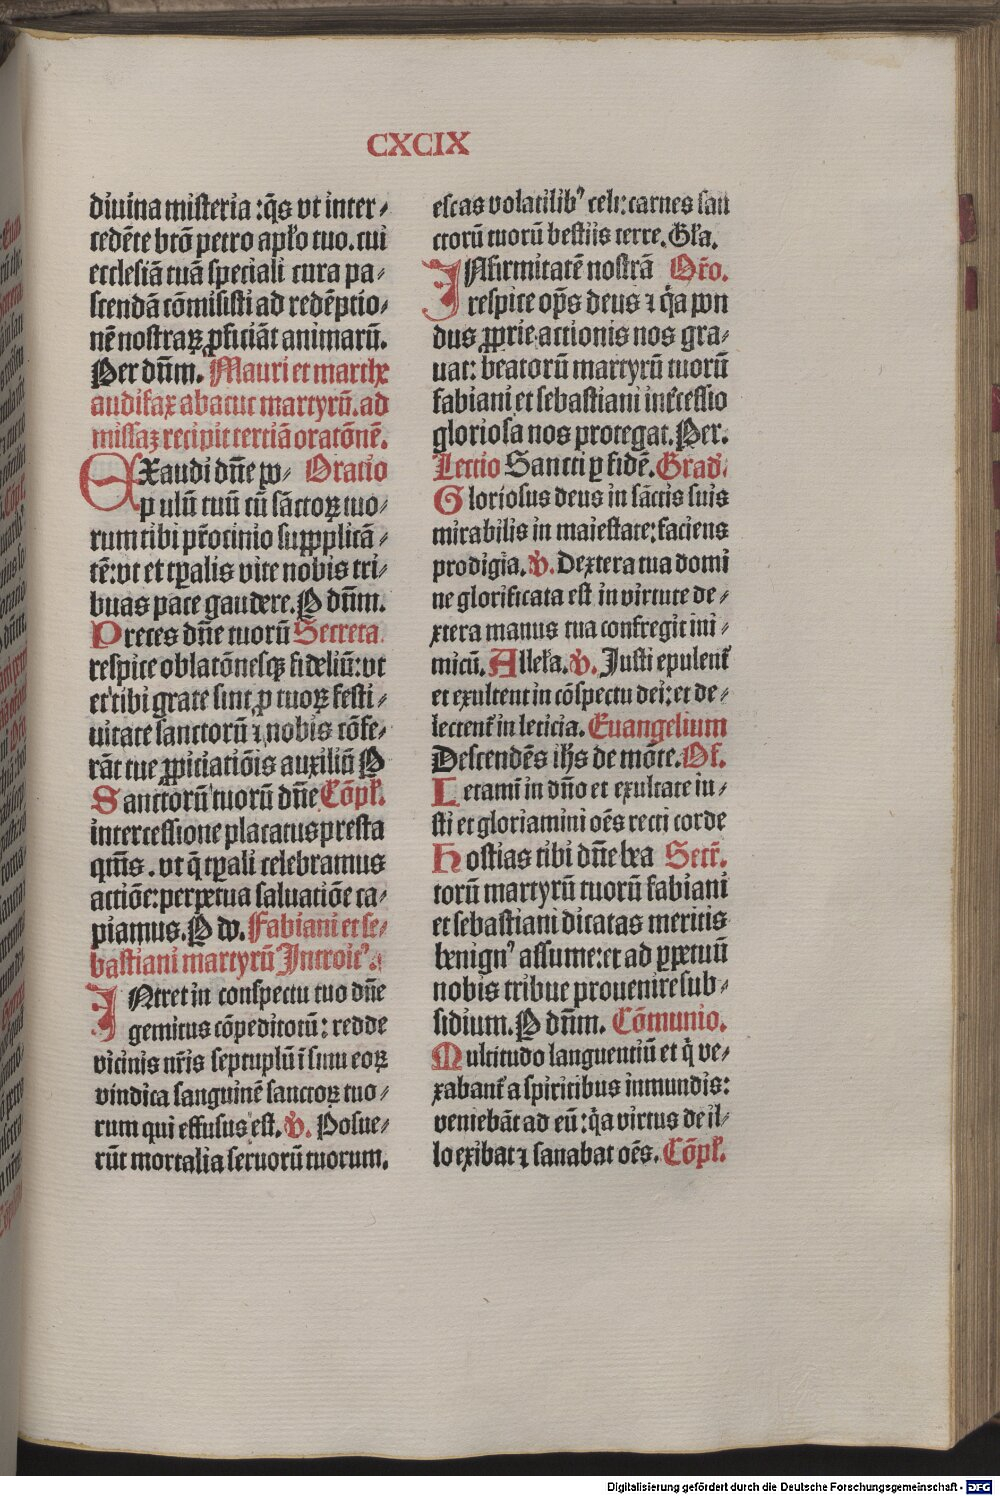 CXCIX
diuina misteria :q̃s vt inter⸗
cedẽte btõ petro apło tuo. cui
ecclesiã tuã speciali cura pa⸗
scendã cõmisisti ad redẽptio⸗
nẽ nostraꝝ ꝓficiãt animarũ.
Per dñm. Mauri et marthe
audifax abacuc martyrũ. ad
missaꝫ recipit tertiã oratõnẽ.
EXaudi dñe po⸗ Oratio
pulũ tuũ cũ sãctoꝝ tuo⸗
rum tibi pr̃ocinio supplicã⸗
tẽ: vt et tꝑalis vite nobis tri⸗
buas pace gaudere. P dñm.
Preces dñe tuorũ Secreta.
respice oblatõnesqꝫ fideliũ: vt
et tibi grate sint ꝓ tuoꝝ festi⸗
uitate sanctorũ ⁊ nobis cõfe⸗
rãt tue ꝓpiciatiõis auxiliũ P
Sanctorũ tuorũ dñe Cõpł.
intercessione placatus presta
qũs. vt q̃ tꝑali celebramus
actiõe: perpetua saluatiõe ca⸗
piamus. P do. Fabiani et se⸗
bastiani martyrũ Introitꝰ.
INtret in conspectu tuo dñe
gemitus cõpeditorũ: redde
vicinis nr̃is septuplũ ĩ sinu eoꝝ
vindica sanguinẽ sanctoꝝ tuo⸗
rum qui effusus est. v̾. Posue⸗
rũt mortalia seruorũ tuorum.
escas volatilibꝰ celi: carnes san
ctorũ tuorũ bestiis terre. Gła.
INfirmitatẽ nostrã Or̃o.
respice op̃s deus ⁊ q̃a pon
dus ꝓprie actionis nos gra⸗
uat: beatorũ martyrũ tuorũ
fabiani et sebastiani inťcessio
gloriosa nos protegat. Per.
Lectio Sancti ꝑ fidẽ. Grad̃.
Gloriosus deus in sãctis suis
mirabilis in maiestate: faciens
prodigia. v̾. Dextera tua domi
ne glorificata est in virtute de⸗
xtera manus tua confregit ini⸗
micũ. Alleła. v̾. Justi epulenť
et exultent in cõspectu dei: et de⸗
lectenť in leticia. Euangelium
Descendẽs ihs de mõte. Of.
Letamĩ in dño et exultate iu⸗
sti et gloriamini oẽs recti corde
Hostias tibi dñe bea Secr̃.
torũ martyrũ tuorũ fabiani
et sebastiani dicatas meritis
benignꝰ assume: et ad ꝑpetuũ
nobis tribue prouenire sub⸗
sidium. P dñm. Cõmunio.
Multitudo languentiũ et q̃ ve⸗
xabanť a spiritibus inmundis:
veniebãt ad eũ: q̃a virtus de il⸗
lo exibat ⁊ sanabat oẽs. Cõpł.
Digitalisierung gefördert durch die Deutsche Forschungsgemeinschaft - DFG